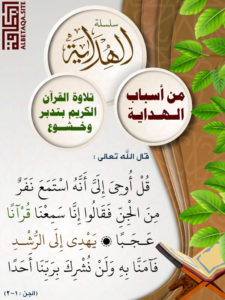 البطاقة
ALBETAQA.SITE
سلسلة
الهداية
من أسباب
الهداية
تلاوة القرآن
الكريم بتدبر
وخشوع
قال الله تعالى :
قُلْ أُوحِيَ إِلَيَّ أَنَّهُ اسْتَمَعَ نَفَرٌ
مِنَ الْجِنِّ فَقَالُوا إِنَّا سَمِعْنَا قُرْآنًا
عَجَبًا ۞ يَهْدِي إِلَى الرُّشْدِ
فَآمَنَّا بِهِ وَلَنْ نُشْرِكَ بِرَبِّنَا أَحَدًا
(الجن : ١-٢)